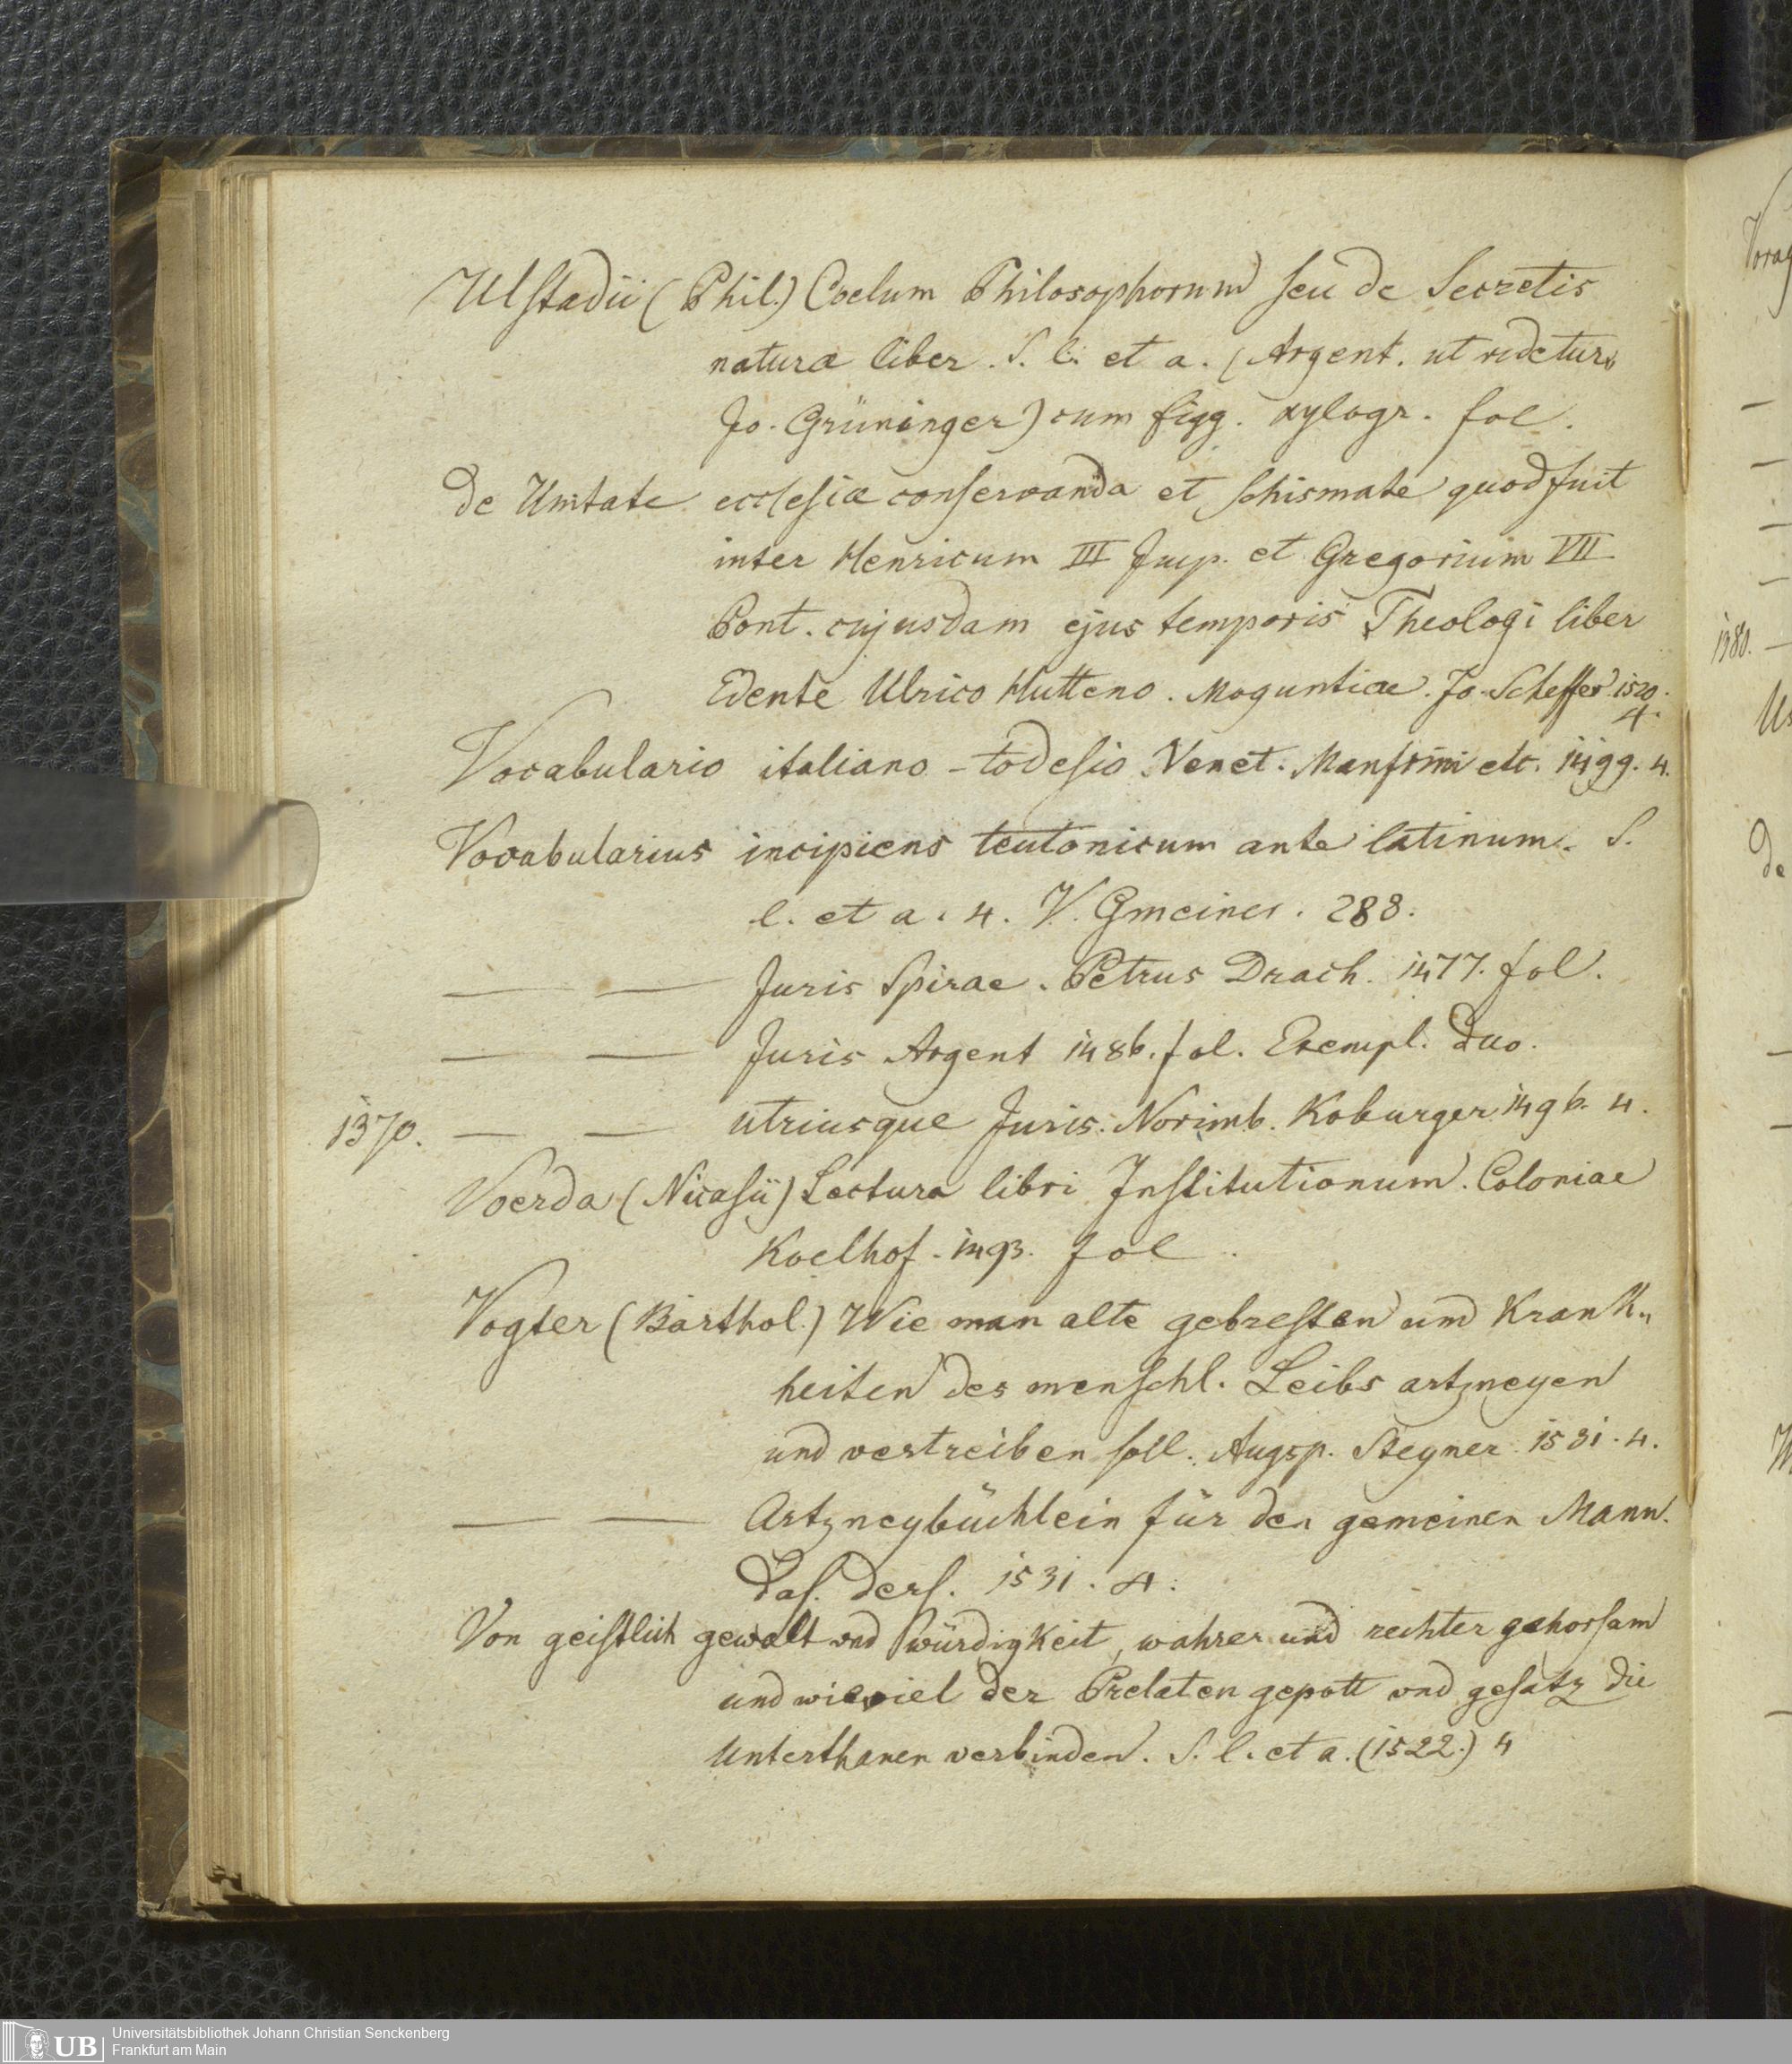 Ulstadii (Phil.) Coelum Philosophorum seu de Secretis
naturæ liber. S. l. et a. (Argent. ut videtur
Jo. Grüninger) cum figg. xylogr. fol.
De Unitate ecclesiæ conservanda et schismate quod fuit
inter Henricum III Imp. et Gregorium VII
Pont. cujusdam ejus temporis Theologi liber
Edente Ulrico Hutteno. Moguntiae. Jo. Scheffer 1520.
4.
Vocabulario italiano-todesio Venet. Manfrini etc. 1499. 4.
Vocabularius incipiens teutonicum ante latinum. S.
l. et a. 4. V. Gmeiner. 288.
— — Juris Spirae. Petrus Drach. 1477. fol.
— — Juris Argent 1486. fol. Exempl. duo.
1370. — — utriusque Juris. Norimb. Koburger. 1496. 4.
Voerda (Nicasii) Lectura libri Institutionum. Coloniae
Koelhof. 1493. fol.
Vogter (Barthol.) Wie man alte gebresten und Krank„
heiten des menschl. Leibs artzneyen
und vertreiben soll. Augsp. Steyner. 1531. 4.
— — Artzneybüchlein für den gemeinen Mann.
Das. ders. 1531. 4.
Von geistlich gewalt vnd würdigkeit, wahrer und rechter gehorsam
und wieviel der Prelaten gepott vnd gesatz die
Unterthanen verbinden. S. l. et a. (1522.) 4
1380.
De
UB
Universitätsbibliothek Johann Christian Senckenberg
Frankfurt am Main